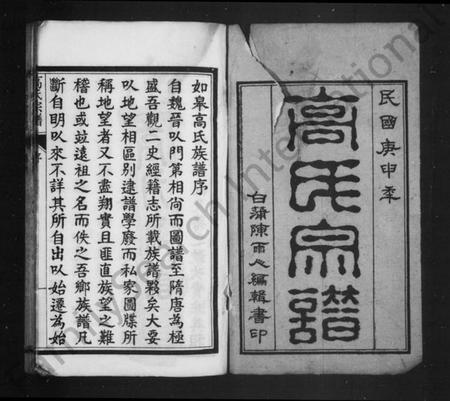 民國庚申年
高氏宗譜
白蒲陳雨心編輯書印
如皋高氏族譜序
自魏晉以門第相尚而圖譜至隋唐為極
盛吾觀二史經籍志所載族譜夥矣大要
以地望相區別逮譜學廢而私家圖牒所
稱地望者又不盡翔實且匪直族望之難
稽也或竝遠祖之名而佚之吾鄉族譜凡
斷自明以來不詳其所自出以始遷為始
高氏宗譜
序
一
FamilySearch International